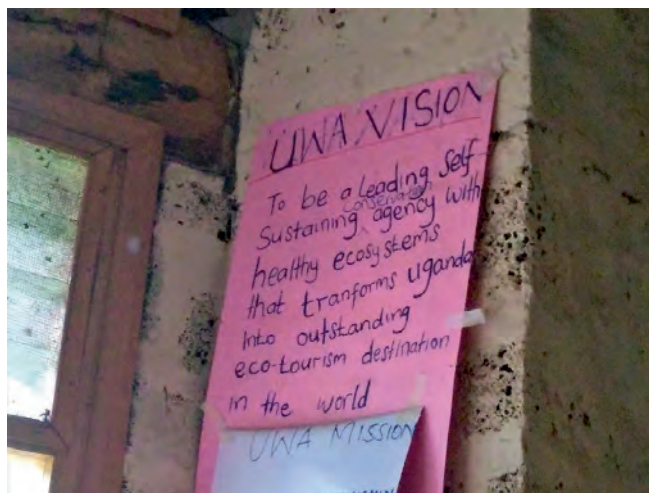 UWA VISION
To be a leading Self-
Sustaining conservation agency with
healthy ecosystems
that tranforms uganda
Into outstanding
eco-tourism destination
in the world
UWA MISSION